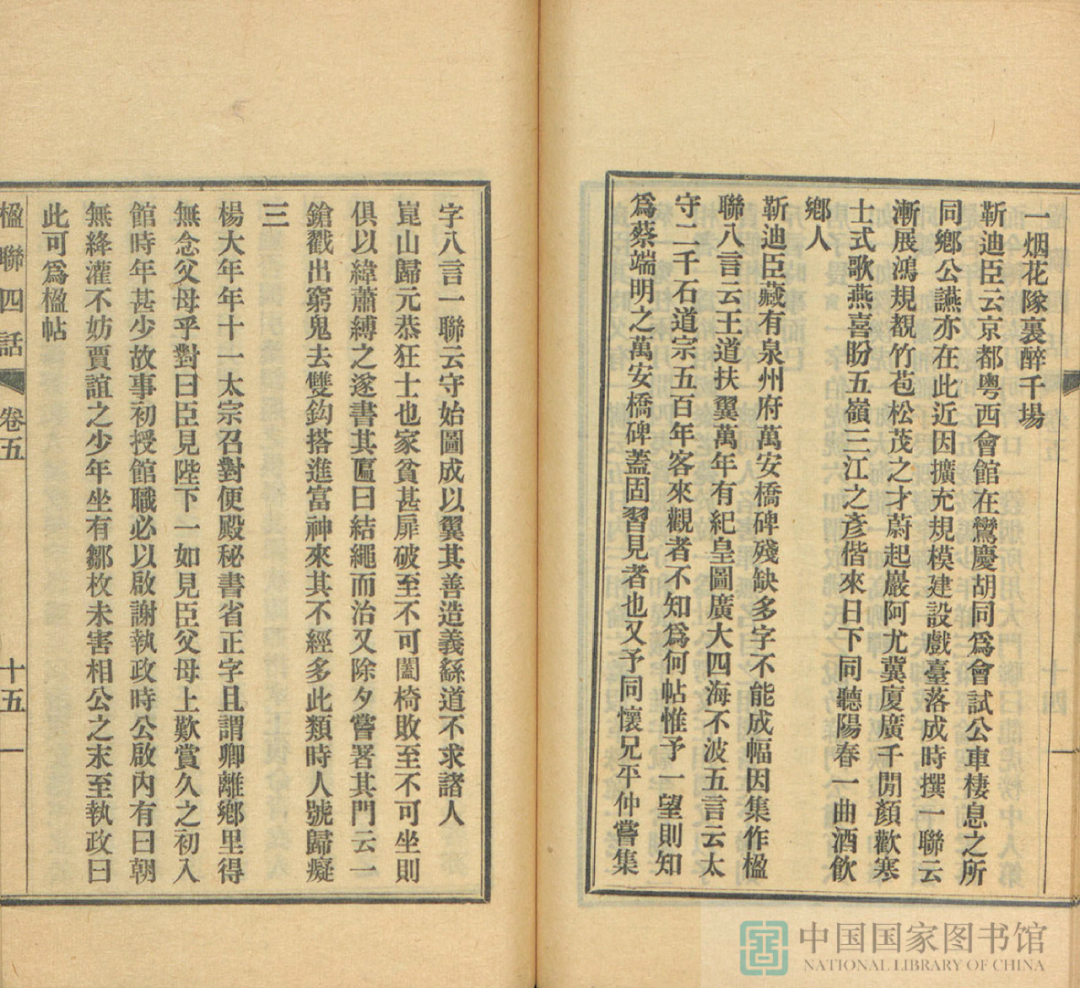 一烟花隊裏醉千場
靳迪臣云京都粤西會館在鸞慶胡同爲會試公車棲息之所
同鄉公讌亦在此近因擴充規模建設戲臺落成時撰一聯云
漸展鴻規覩竹苞松茂之才蔚起巖阿尤冀廈廣千閒顏歡寒
士式歌燕喜盼五嶺三江之彥偕來日下同聽陽春一曲酒飲
鄉人
靳迪臣藏有泉州府萬安橋碑殘缺多字不能成幅因集作楹
聯八言云王道扶翼萬年有紀皇圖廣大四海不波五言云太
守二千石道宗五百年客來觀者不知爲何帖惟予一望則知
爲蔡端明之萬安橋碑蓋固習見者也又予同懷兄平仲嘗集
字八言一聯云守始圖成以翼其善造義繇道不求諸人
崑山歸元恭狂士也家貧甚扉破至不可闔椅敗至不可坐則
俱以緯蕭縛之遂書其匾曰結繩而治又除夕嘗署其門云一
鎗戳出窮鬼去雙鈎搭進富神來其不經多此類時人號歸癡
三
楊大年年十一太宗召對便殿秘書省正字且謂卿離鄉里得
無念父母乎對曰臣見陛下一如見臣父母上歎賞久之初入
館時年甚少故事初授館職必以啟謝執政時公啟內有曰朝
無絳灌不妨賈誼之少年坐有鄒枚未害相公之末至執政曰
此可爲楹帖
楹聯四話 卷五 十五
中国国家图书馆
NATIONAL LIBRARY OF CHINA